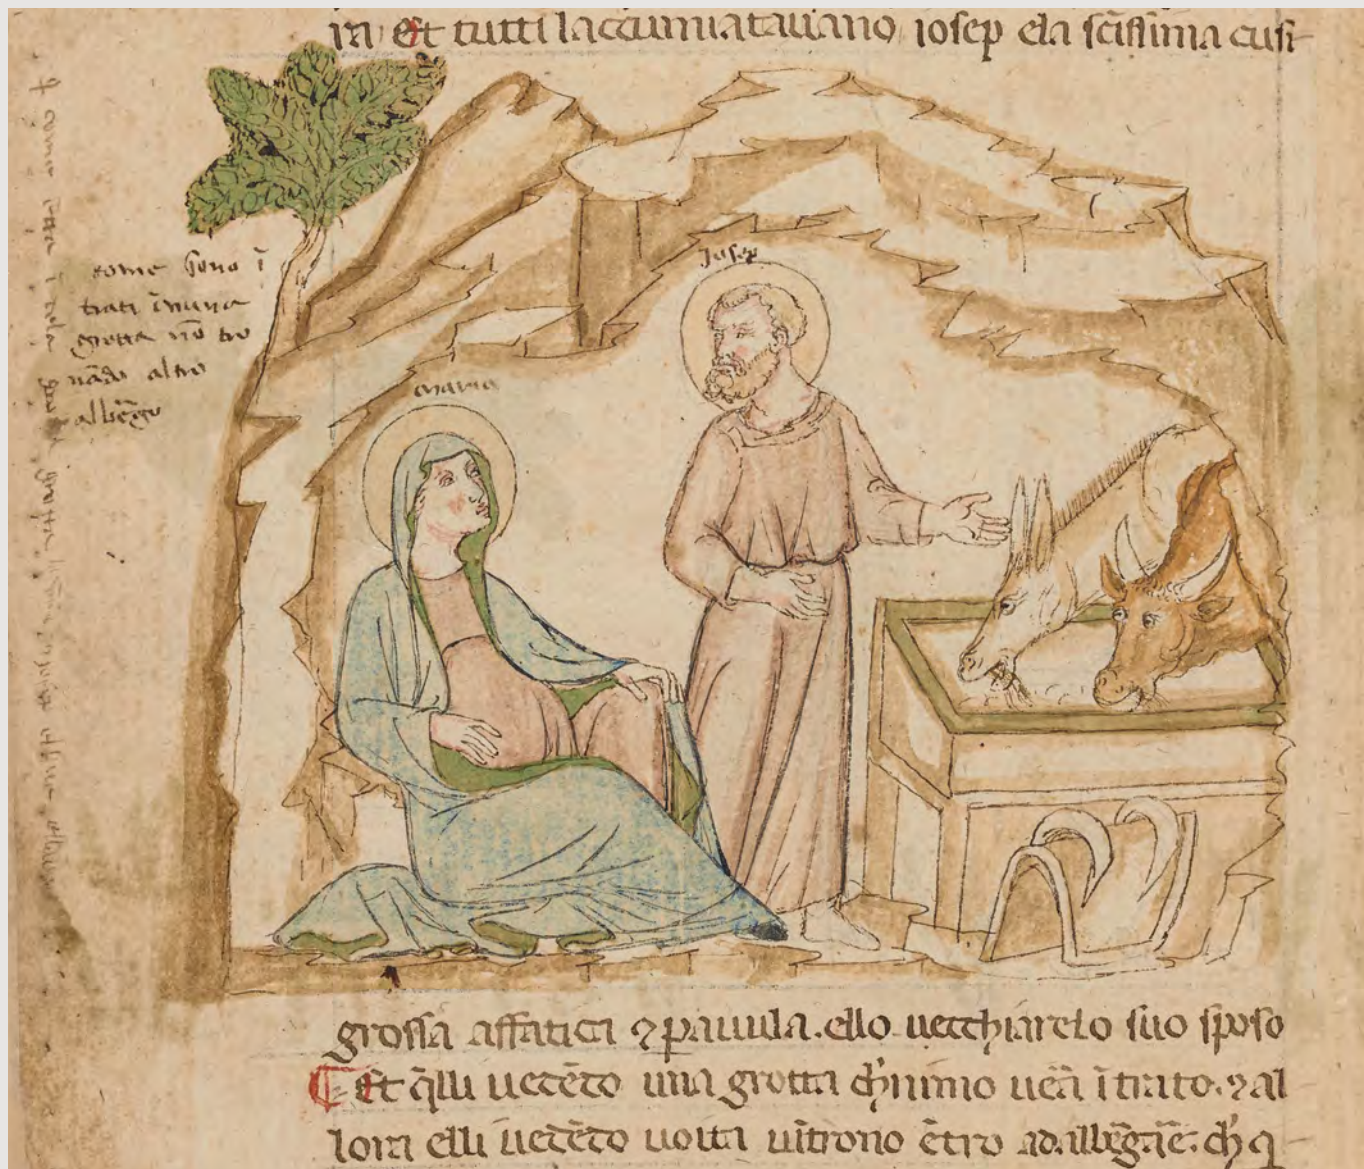 ra Et tutti laccumiatauano iosep ela sc̄issima cusi
come sono ī
trati ī una
grotta nō tro
uādo altro
albēgo
Josep
maria
grossa affatica ⁊ pauula. ello uecchiarelo suo sposo
Et q̄lli uedēdo una grotta ueā ītrato. ⁊ al
lora elli uedēdo uoita uītrono ētro ch̄ q